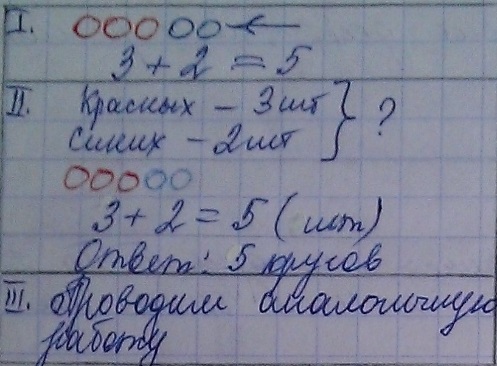 I.
3 + 2 = 5
II. Красных - 3 шт } ?
Синих - 2 шт
3 + 2 = 5 (шт)
Ответ: 5 кругов
III. Проводим аналогичную
работу